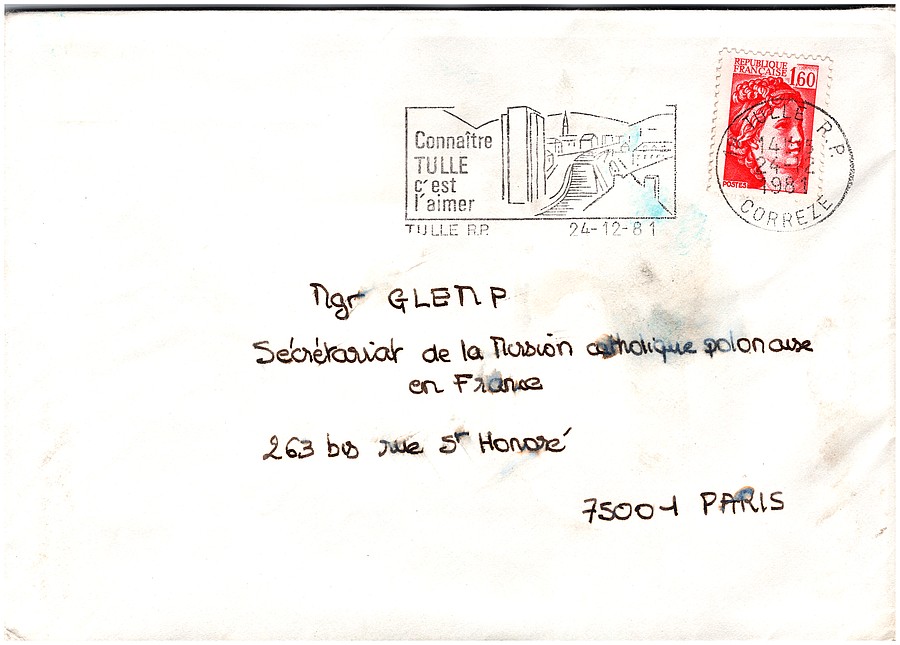 REPUBLIQUE
FRANÇAISE 1,60
POSTES
TULLE R.P.
24-12
1981
CORREZE
Connaître
TULLE
c'est
l'aimer
TULLE R.P. 24-12-81
Mgr GLEMP
Sécrétariat de la Mission catholique polonaise
en France
263 bis rue St Honoré
75001 PARIS